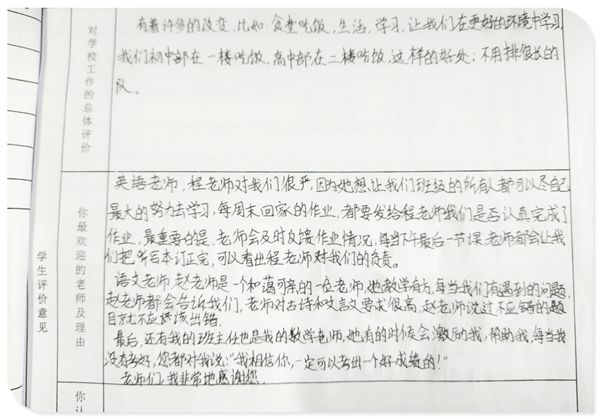 对学校工作的总体评价
有着许多的改变，比如食堂吃饭，生活，学习，让我们在更好的环境中学习，
我们初中部在一楼吃饭，高中部在二楼吃饭，这样的好处：不用排很长的
队。
学生评价意见
你最欢迎的老师及理由
英语老师，程老师对我们很严，因为她想让我们班级的所有人都可以尽自己
最大的努力去学习，每周末回家的作业，都要发给程老师我们是否认真完成了
作业，最重要的是，老师会及时反馈作业情况，每当下午最后一节课，老师都会让我
们把听写本订正完，可以看出程老师对我们的负责。
语文老师，赵老师是一个和蔼可亲的一位老师，她教学有方，每当我们有遇到的问题，
赵老师都会告诉我们，老师对古诗和文言文要求很高，赵老师说过不应错的题
目就不应该出错。
最后，还有我的班主任也是我的数学老师，她有的时候会激励我，帮助我，每当我
没有考好，您都对我说：“我相信你，一定可以考出一个好成绩的！”
老师们，我非常地感谢您。
你认